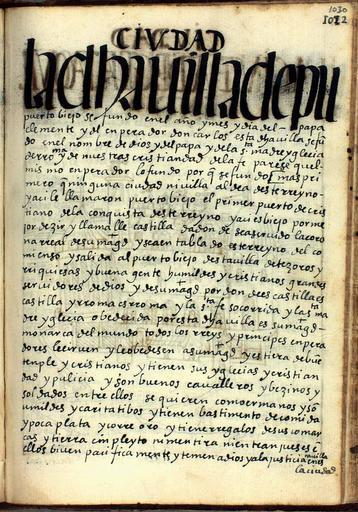 1030
1022
CIVDAD
la dha uilla de pu
puerto biejo se fundo en el año y mes y dia del papa
clemente y del enperador don carlos esta dha uilla se fu
do en el nonbre de dios y del papa y de la s.ta madre yglecia
de rroma y de nuestra cristiandad de la fe parese quel
mismo enperador lo fundo por q̃ se fundo mas pri
mero q̃ ninguna ciudad ni uilla aldea deste rreyno
y aci le llamaron puerto biejo el primer puerto de cris
tiano de la conquista deste rreyno y aci es biejo por me
por dezir y llamalle castilla da don de sea seruido la coro
na rreal de su mag.d y sea entablado este rreyno del co
mienso y salida al puerto biejo desta uilla de tezoros y
rriquiesas y buena gente humildes y cristianos grandes
seruidores de dios y de su mag.d por donde es castilla es
castilla y rroma es rroma y la s.ta fe socorrida y la s.ta ma
dre yglecia obedecida por esta dha uilla es su mag.d
monarca del mundo todos los rreys y prinsipes enpera
dores le ciruen y le obedesen a su mag.d y es tierra de bue
tenple y cristianos y tienen sus yglecias y cristian
dad y pulicia y son buenos caualleros y bezinos y
soldados entre ellos se quieren como ermanos y so
umildes y caritatibos y tienen bastimento de comida
y poca plata y orre oro y tiene rregalos de sus uamar
cas y tierra cin pleyto ni mentira ni entran jueses
ellos biuen pacificamente y temen a dios y a la justicia en esta uilla
la ciudad